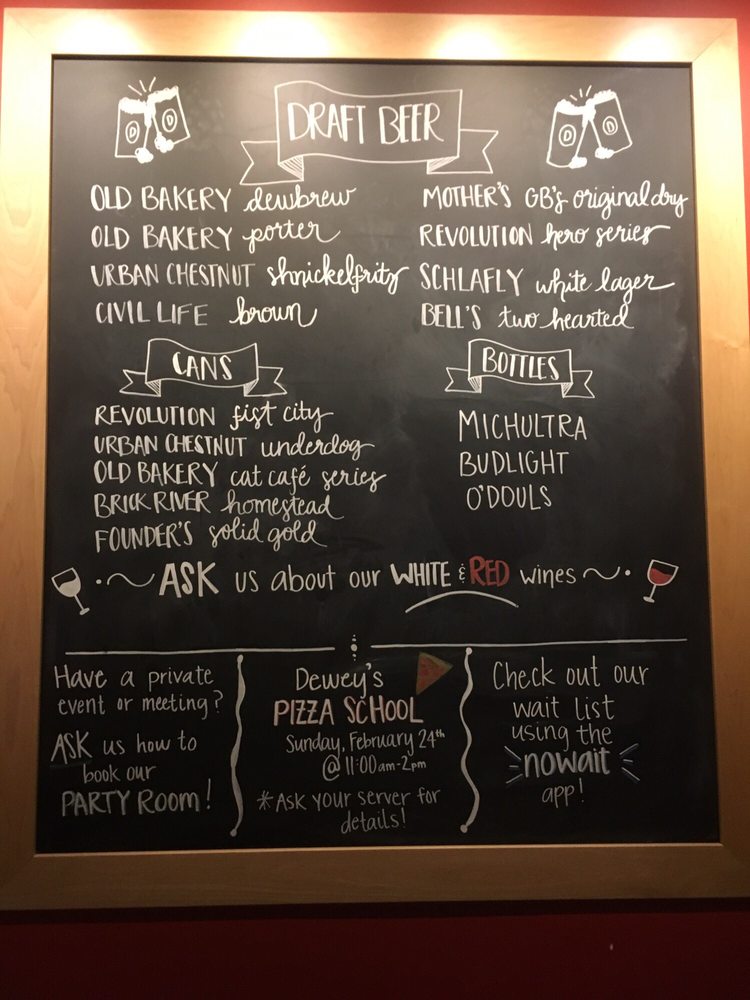 D D
DRAFT BEER
D D
OLD BAKERY dewbrew
OLD BAKERY porter
URBAN CHESTNUT shnickelfritz
CIVIL LIFE brown
MOTHER'S GB's original dry
REVOLUTION hero series
SCHLAFLY white lager
BELL'S two hearted
CANS
REVOLUTION fist city
URBAN CHESTNUT underdog
OLD BAKERY cat café series
BRICK RIVER homestead
FOUNDER'S solid gold
BOTTLES
MICHULTRA
BUDLIGHT
O'DOULS
ASK us about our WHITE & RED wines
Have a private
event or meeting?
ASK us how to
book our
PARTY ROOM!
Dewey's
PIZZA SCHOOL
Sunday, February 24th
@ 11:00am-2pm
*Ask your server for
details!
Check out our
wait list
using the
nowait
app!